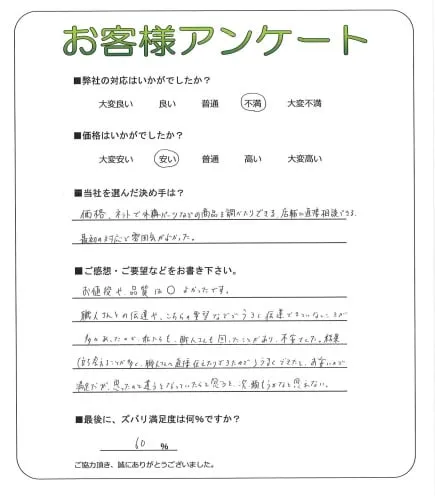 お客様アンケート
■弊社の対応はいかがでしたか？
大変良い 良い 普通 不満 大変不満
■価格はいかがでしたか？
大変安い 安い 普通 高い 大変高い
■当社を選んだ決め手は？
価格、ネットで外構パーツなどの商品を調べたりできる、店舗に直接相談できる
最初の対応で雰囲気がよかった。
■ご感想・ご要望などをお書き下さい。
お値段や、品質は〇 よかったです。
職人さんとの伝達や、こちらの要望などがうまく伝達できていないことが
多かあったので、私たちも、職人さんも困ったことがあり、不安でした。結果
考えることが多く、職人さんに直接伝えたりできたのでうまくできたし、お安いので
満足だが、思ったのと違うとなっていたらと思うと、次頼もうかなと思えない。
■最後に、ズバリ満足度は何％ですか？
60 ％
ご協力頂き、誠にありがとうございました。